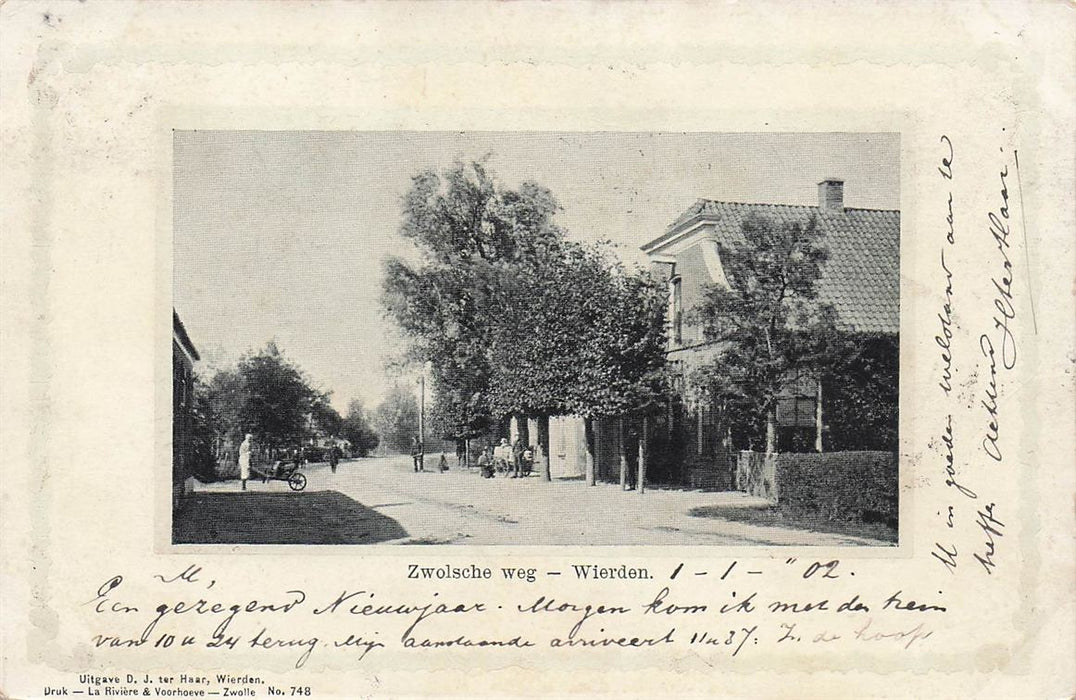 Zwolsche weg – Wierden. 1 - 1 - " 02.
M,
Een gezegend Nieuwjaar. Morgen kom ik met den trein
van 10 u 24 terug. Mijn aanstaande arriveert 11 u 37: In de hoop
U in goeden welstand aan te
treffen Achtend HterHaar.
Uitgave D. J. ter Haar, Wierden.
Druk — La Rivière & Voorhoeve — Zwolle No. 748